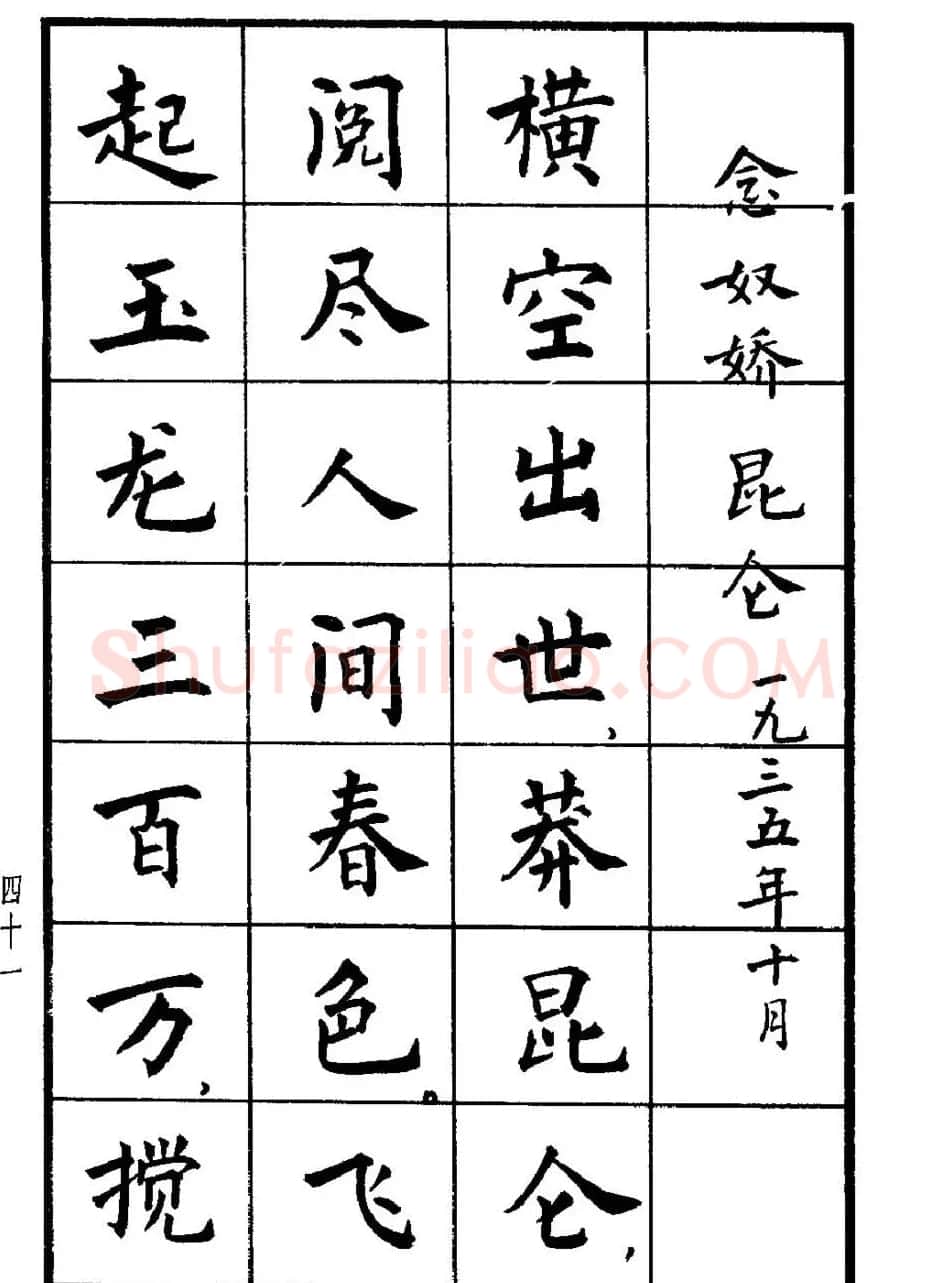 念奴娇 昆仑 一九三五年十月
横空出世，莽昆仑，
阅尽人间春色。飞
起玉龙三百万，搅
四十一
Shufaziliao.COM